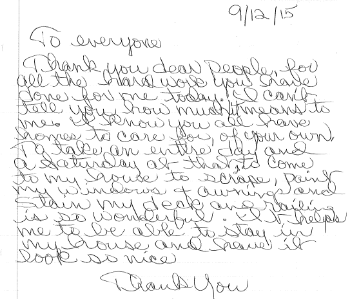 9/12/15
To everyone
Thank you dear people, for
all the hard work you have
done for me today. I can't
tell you how much means to
me. I know you all have
homes to care for, of your own.
To take an entire day and
a Saturday at that, to come
to my house to scrape, paint
my windows & awning and
stain my deck and railing
is so wonderful. It helps
me to be able to stay in
my house and have it
look so nice
Thank You